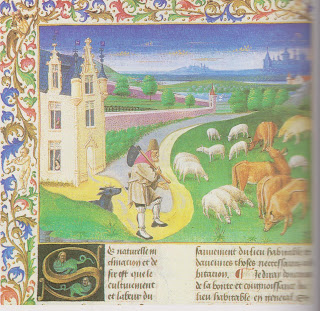 De naturelle in
clination et de
sir est que le
cultivement
et labeur du
farniement du lieu habitable et
daucunes choses necessaires
bitation. Je diray
de la bonte et congnoissance du
lieu habitable en general